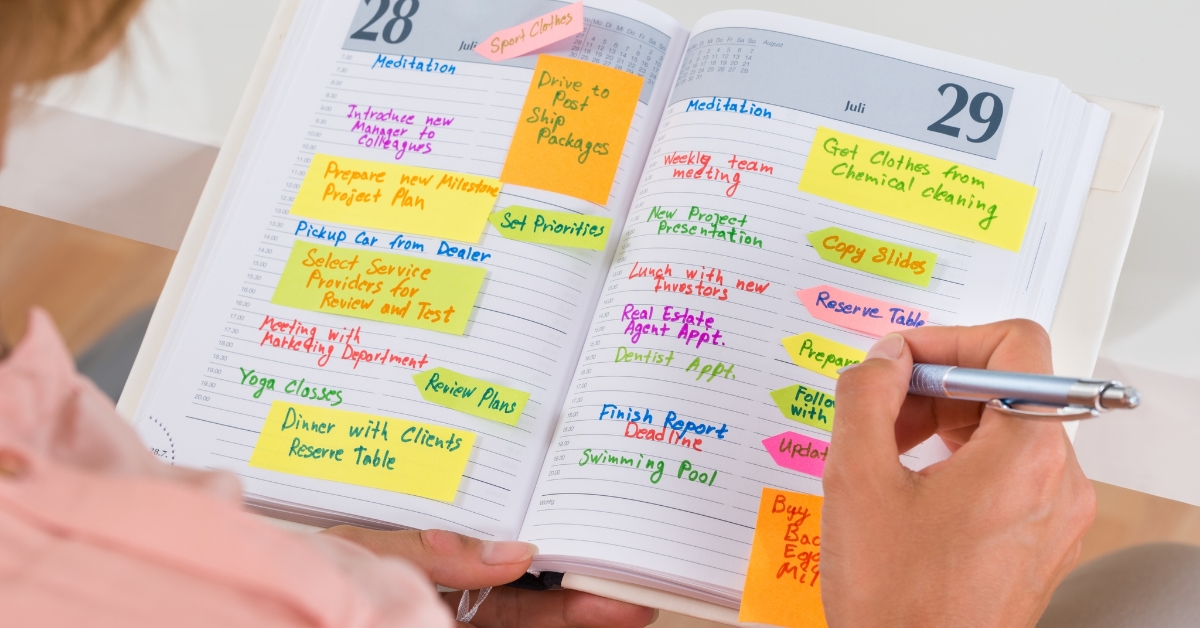 28
Juli
Sport Clothes
Meditation
Drive to
Post
Ship
Packages
Introduce new
Manager to
Colleagues
Prepare new Milestone
Project Plan
Set Priorities
Pickup Car from Dealer
Select Service
Providers for
Review and Test
Meeting with
Marketing Department
Yoga Classes
Review Plans
Dinner with Clients
Reserve Table
29
Juli
August
Meditation
Get Clothes from
Chemical cleaning
Weekly team
meeting
New Project
Presentation
Copy Slides
Lunch with new
Investors
Reserve Table
Real Estate
Agent Appt.
Prepare
Dentist Appt.
Follo
with
Finish Report
Deadline
Updat
Swimming Pool
Buy
Bac
Egg
Mil